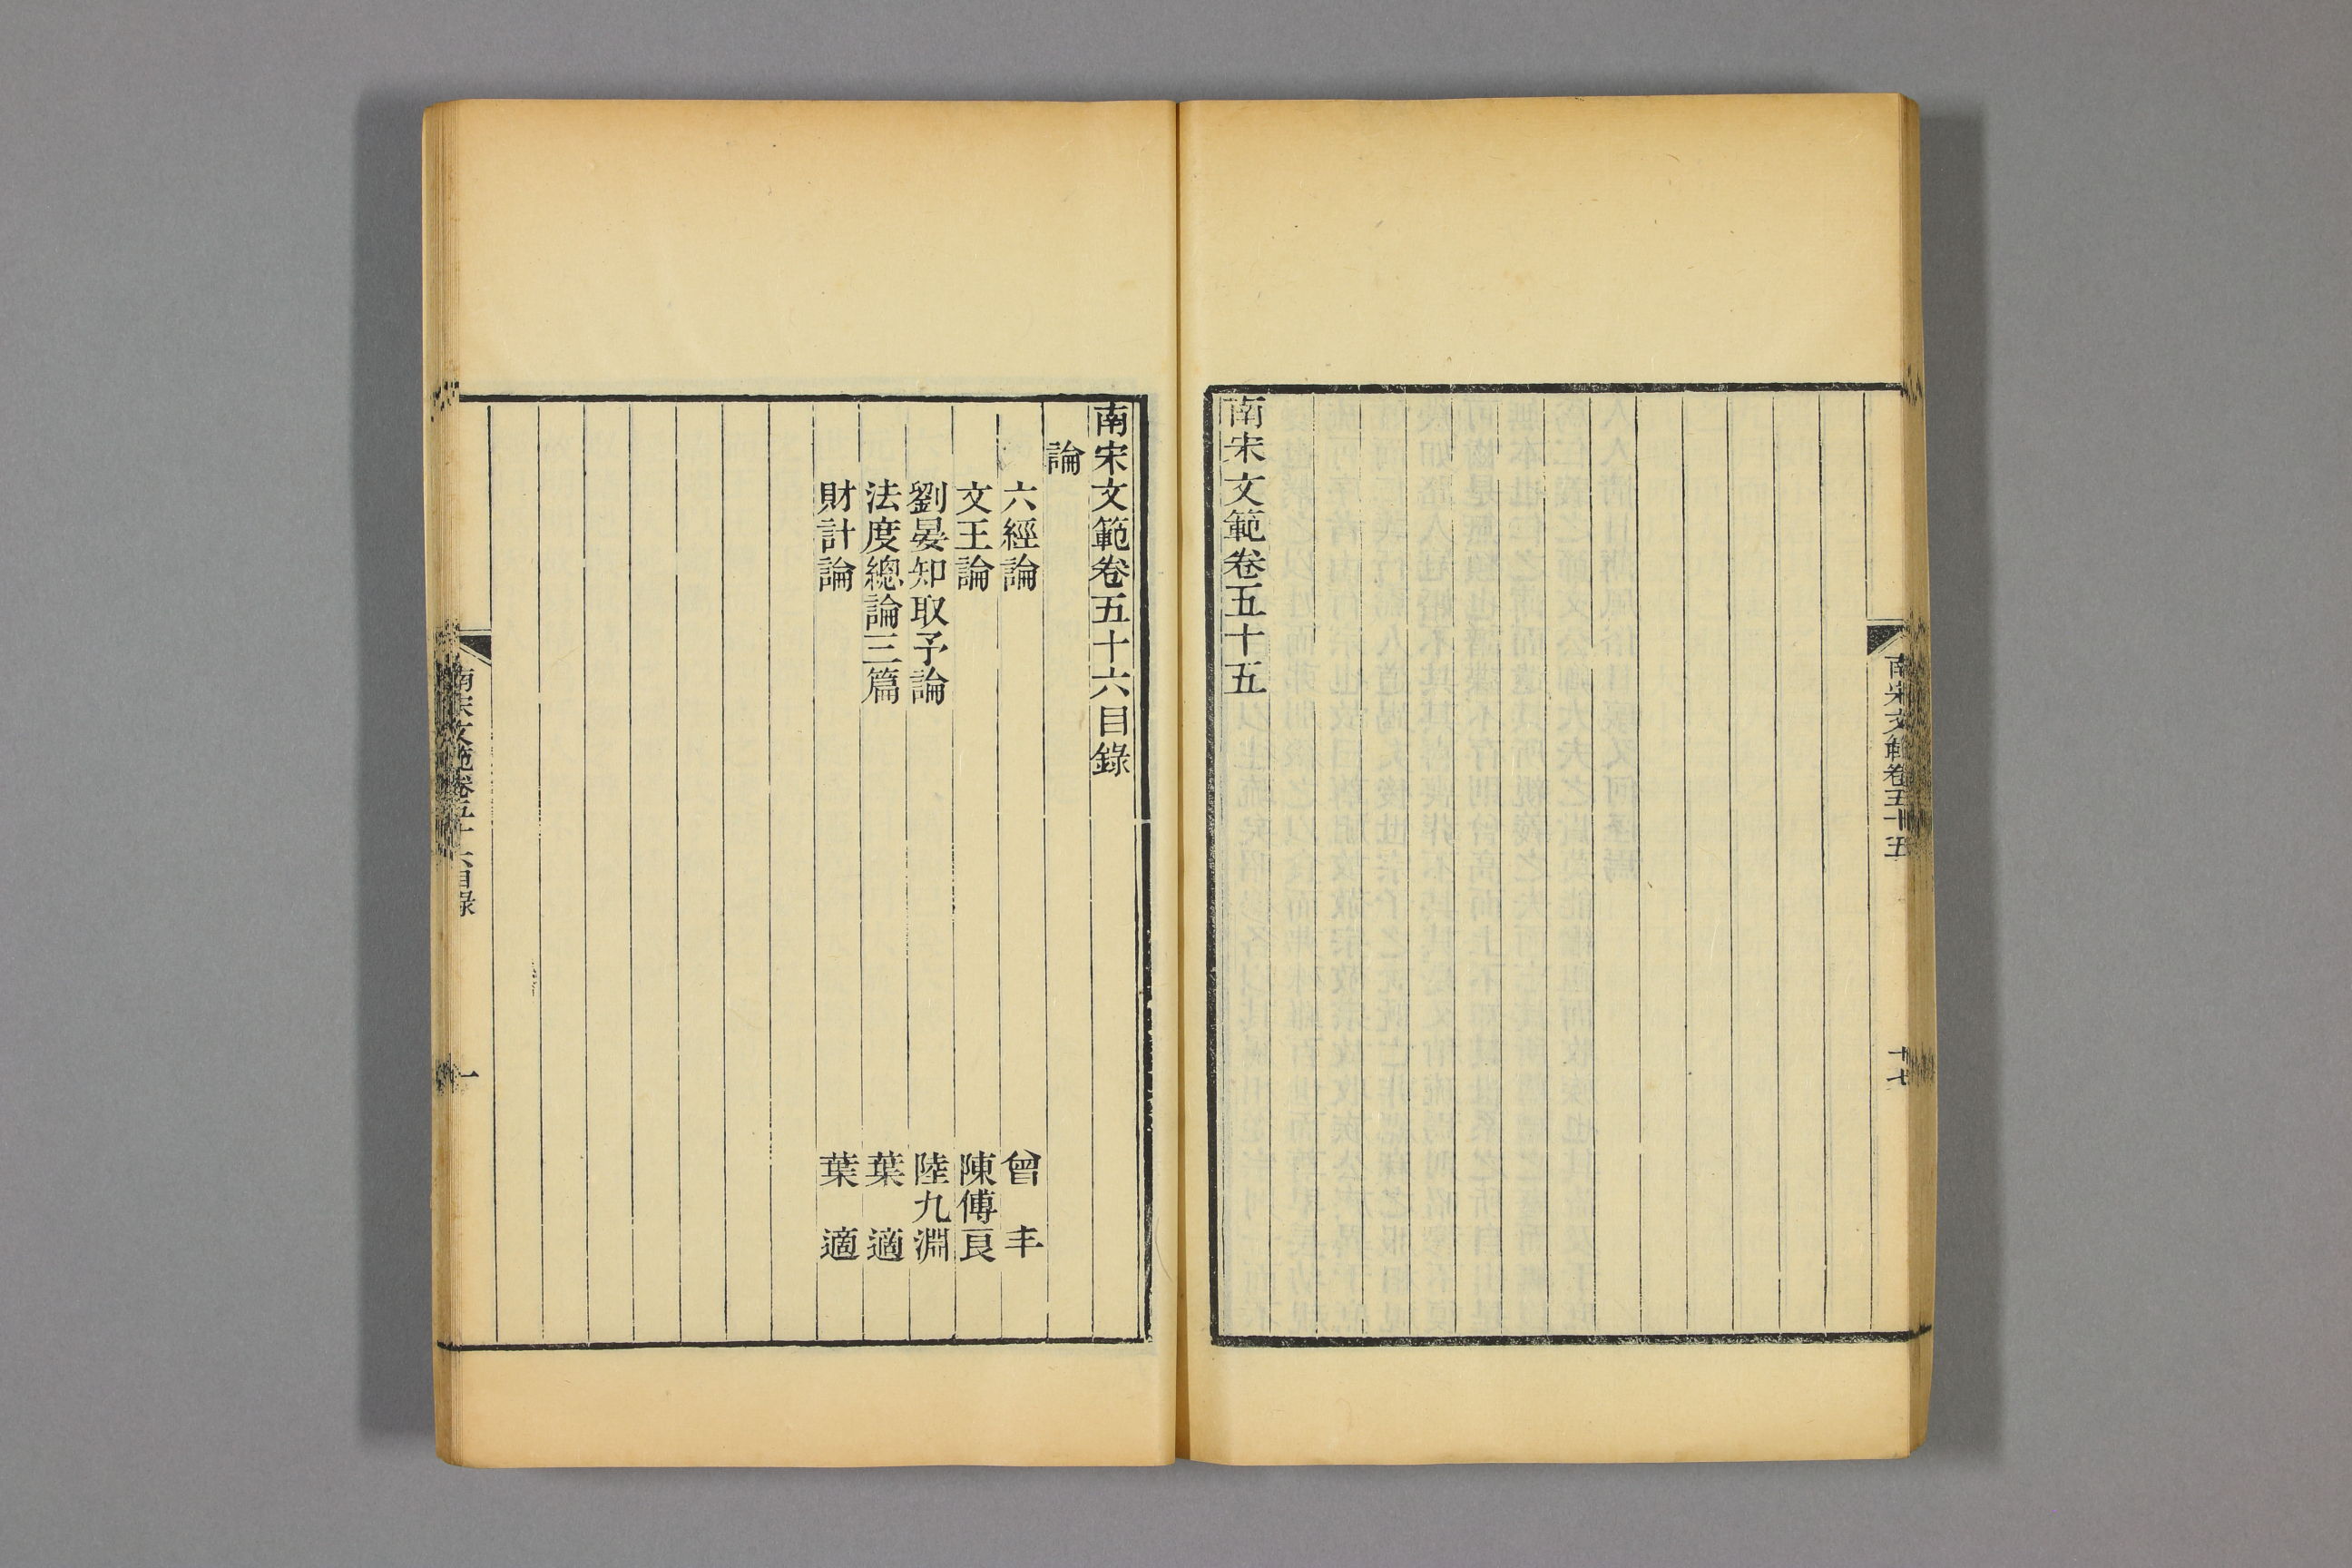 南宋文範卷五十五
十七
南宋文範卷五十五
南宋文範卷五十六目錄
論
六經論 曾丰
文王論 陳傅良
劉晏知取予論 陸九淵
法度總論三篇 葉適
財計論 葉適
南宋文範卷五十六目錄
一